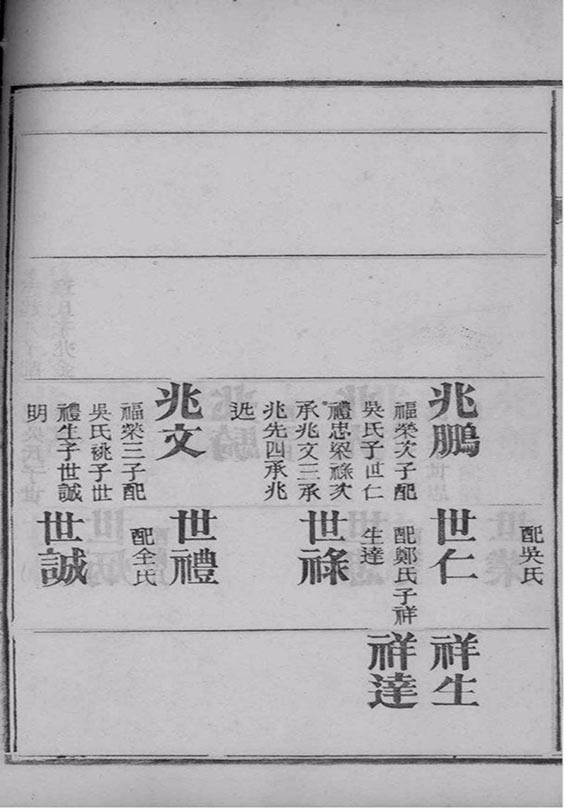 兆鵬
福榮次子配
吳氏子世仁
禮忠梁祿次
承兆文三承
兆先四承兆
兆文
福榮三子配
吳氏祧子世
禮生子世誠
明
配吳氏
世仁
配鄭氏子祥
生達
世祿
世禮
配全氏
世誠
祥生
祥達